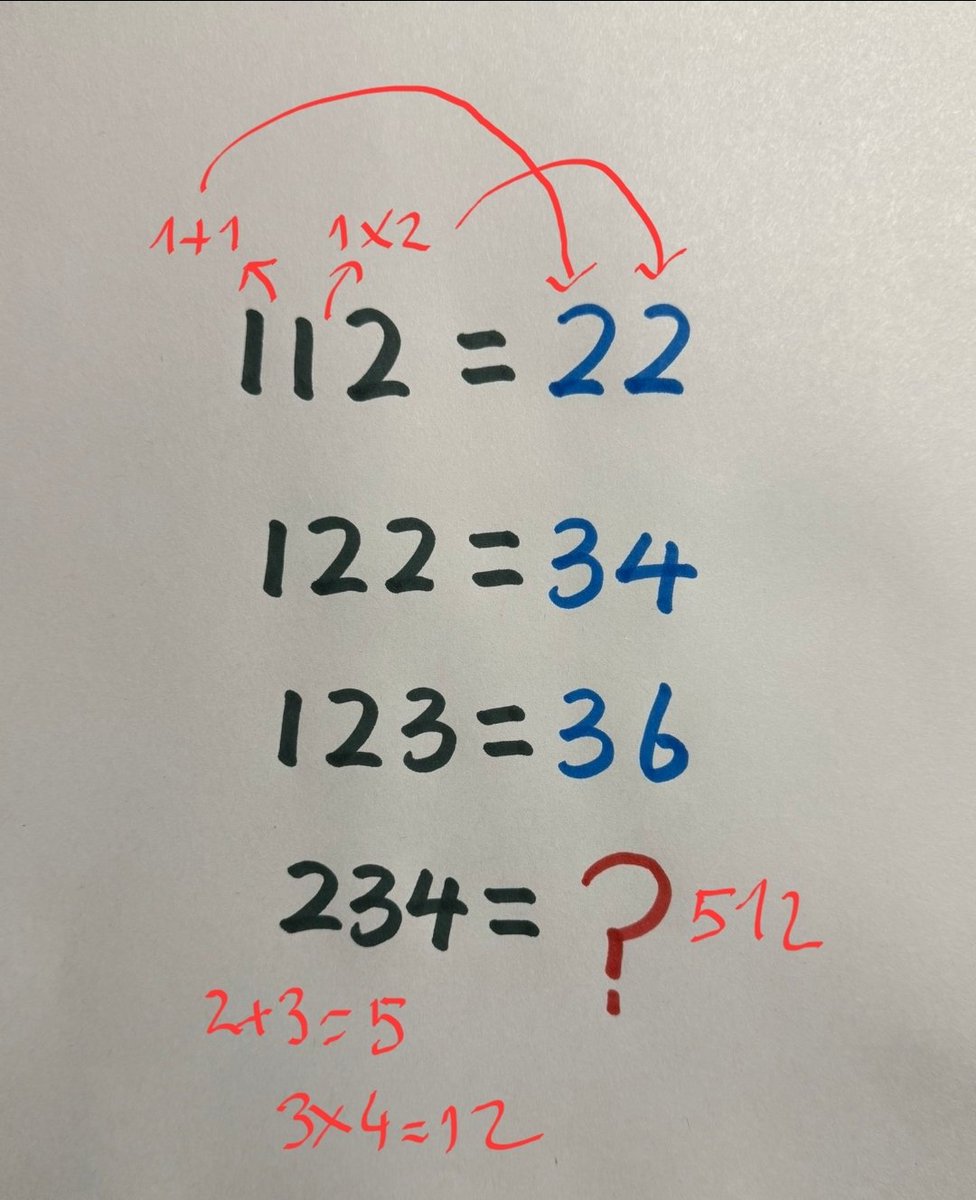 1+1 1×2
112 = 22
122 = 34
123 = 36
234 = ? 512
2+3=5
3×4=12